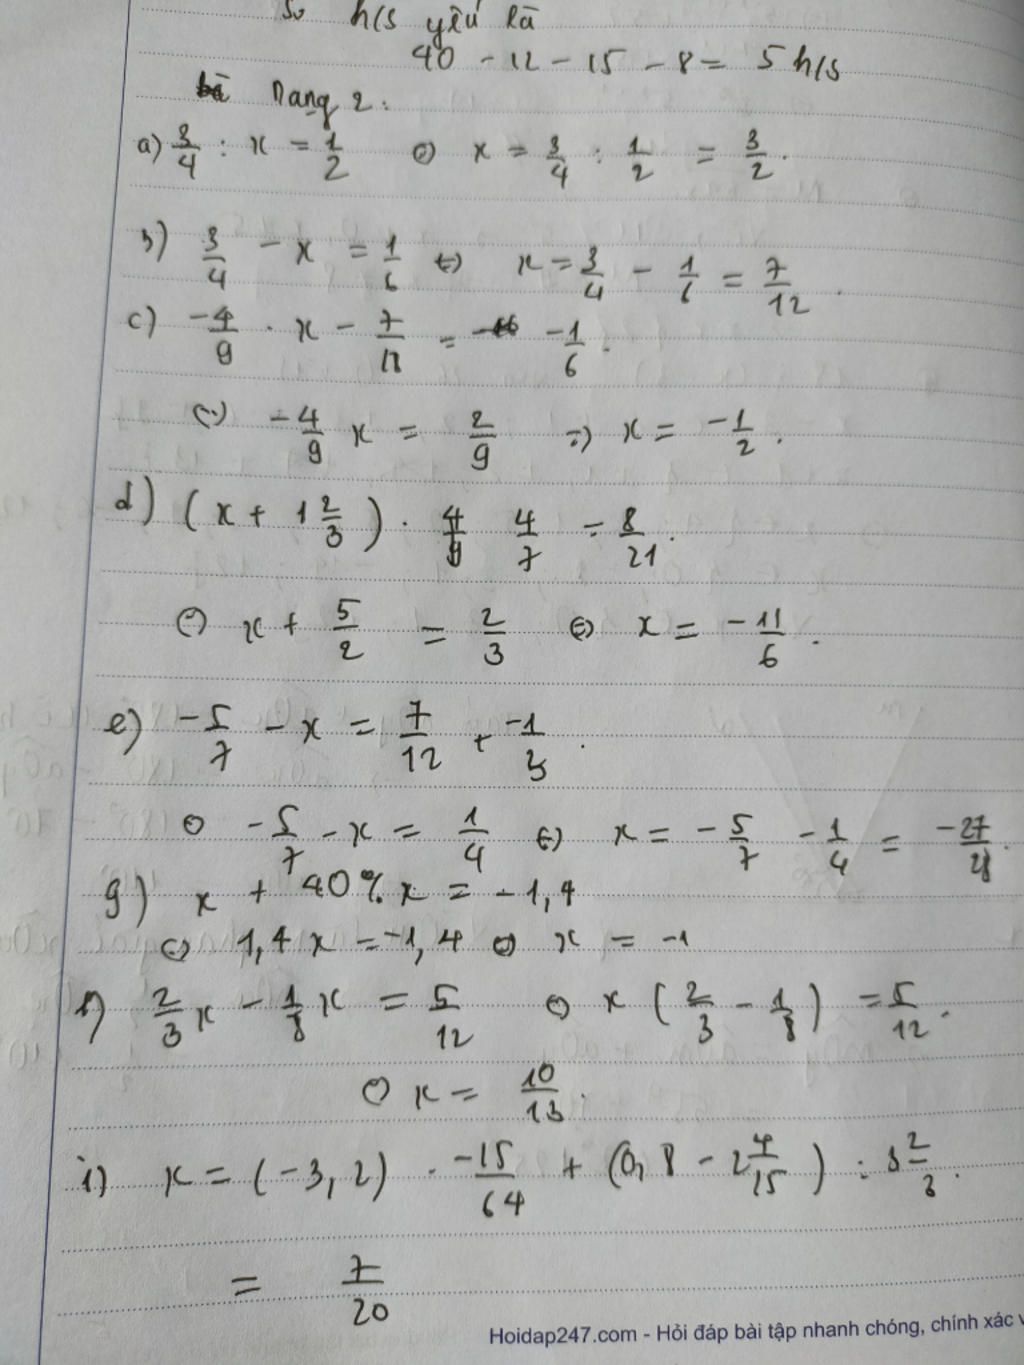 Số h/s yếu là
40 - 12 - 15 - 8 = 5 h/s
Dạng 2:
a) 3/4 : x = 1/2 ⇔ x = 3/4 : 1/2 = 3/2.
b) 3/4 - x = 1/6 ⇔ x = 3/4 - 1/6 = 7/12.
c) -4/9 . x - 7/11 = -1/6.
⇔ -4/9 x = 2/9 ⇒ x = -1/2.
d) (x + 1 2/3) . 4/7 = 8/21.
⇔ x + 5/2 = 2/3 ⇔ x = -11/6.
e) -5/7 - x = 7/12 + -1/3.
⇔ -5/7 - x = 1/4 ⇔ x = -5/7 - 1/4 = -27/28.
g) x + 40% x = -1,4
⇔ 1,4x = -1,4 ⇔ x = -1
2/3 x - 1/8 x = 5/12 ⇔ x (2/3 - 1/8) = 5/12.
⇔ x = 10/13.
i) x = (-3,2) . -15/64 + (0,8 - 2 4/15) : 3 2/3.
= 7/20
Hoidap247.com - Hỏi đáp bài tập nhanh chóng, chính xác